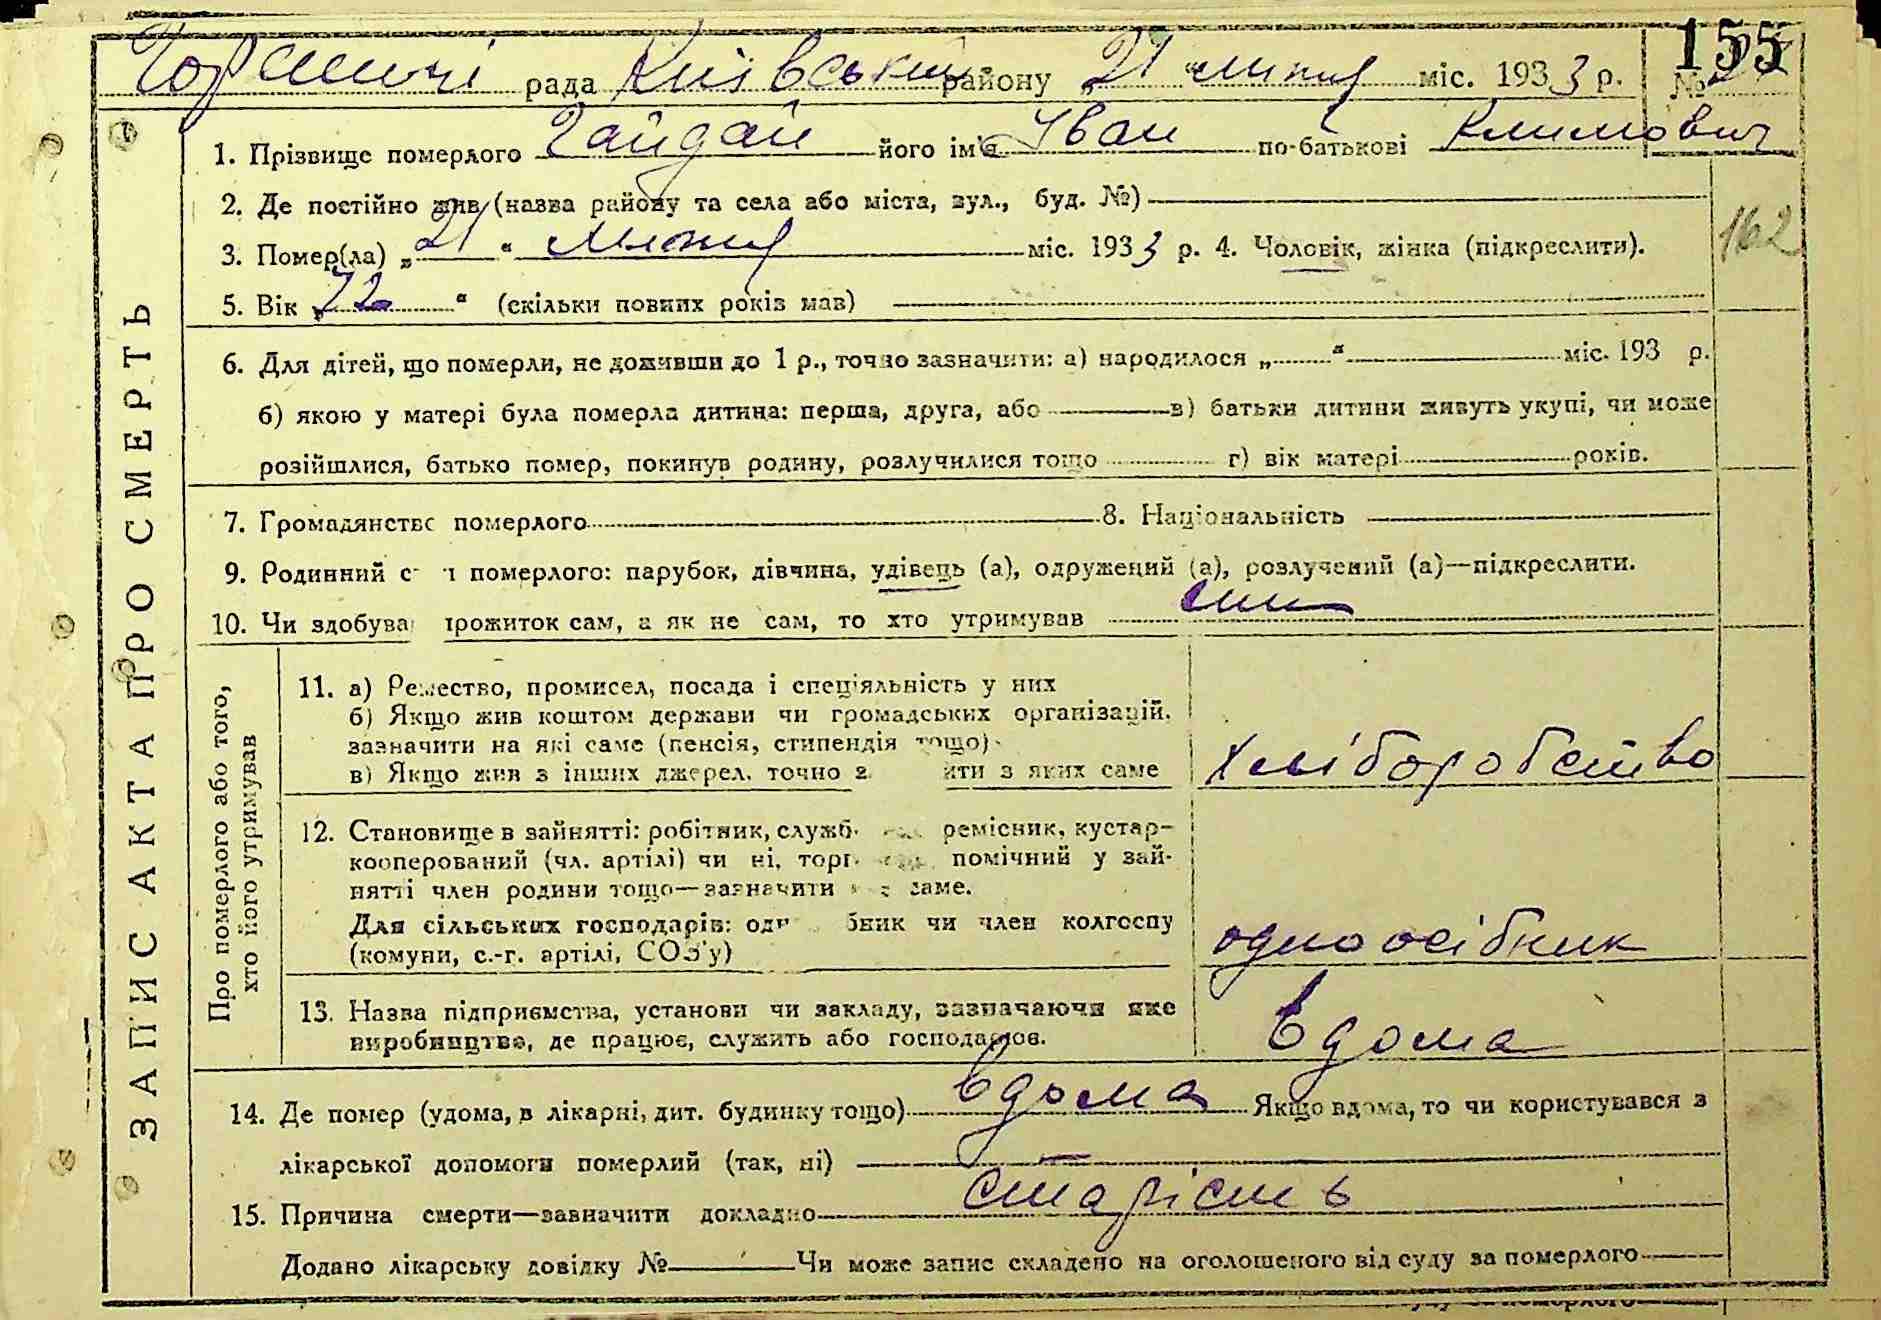 155
Горєничі рада Київський району „21“ липня міс. 1933 р. №
1. Прізвище померлого Гайдай його ім'я Іван по-батькові Климович
2. Де постійно жив (назва району та села або міста, вул., буд. №)
162
3. Помер(ла) „21“ липня міс. 1933 р. 4. Чоловік, жінка (підкреслити).
5. Вік „72“ (скільки повних років мав)
6. Для дітей, що померли, не доживши до 1 р., точно зазначити: а) народилося „ “ міс. 193 р.
б) якою у матері була померла дитина: перша, друга, або в) батьки дитини живуть укупі, чи може
розійшлися, батько помер, покинув родину, розлучилися тощо г) вік матері років.
7. Громадянство померлого 8. Національність
9. Родинний с н померлого: парубок, дівчина, удівець (а), одружений (а), розлучений (а)—підкреслити.
10. Чи здобува прожиток сам, а як не сам, то хто утримував син
11. а) Ремество, промисел, посада і спеціяльність у них
б) Якщо жив коштом держави чи громадських організацій,
зазначити на які саме (пенсія, стипендія тощо)
в) Якщо жив з інших джерел, точно з ити з яких саме
хліборобство
12. Становище в зайнятті: робітник, служб ремісник, кустар-
кооперований (чл. артілі) чи ні, торг помічний у зай-
нятті член родини тощо—зазначити саме.
Для сільських господарів: одн бник чи член колгоспу
(комуни, с.-г. артілі, СОЗ'у)
одноосібник
13. Назва підприємства, установи чи закладу, зазначаючи яке
виробництво, де працює, служить або господарює.
вдома
14. Де помер (удома, в лікарні, дит. будинку тощо) вдома Якщо вдома, то чи користувався з
лікарської допомоги померлий (так, ні)
15. Причина смерти—зазначити докладно старість
Додано лікарську довідку № Чи може запис складено на оголошеного від суду за померлого
ЗАПИС АКТА ПРО СМЕРТЬ
Про померлого або того,
хто його утримував